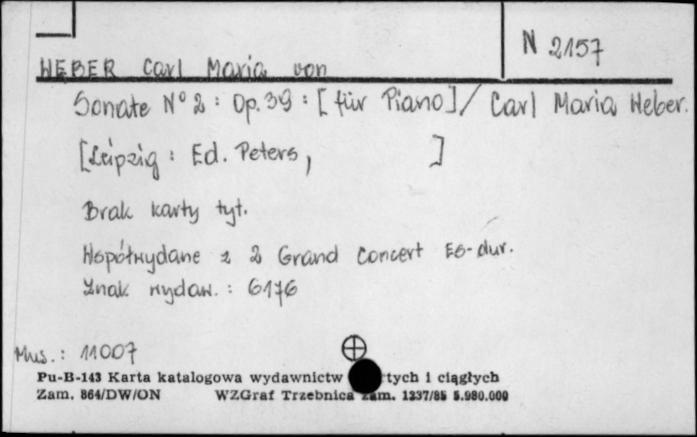 N 2157
WEBER Carl Maria von
Sonate No 2 : Op. 39 : [für Piano] / Carl Maria Weber.
[Leipzig : Ed. Peters, ]
Brak karty tyt.
Współwydane z 2 Grand Concert Es-dur.
Znak wydaw. : 6176
Mus. : 11007
Pu-B-143 Karta katalogowa wydawnictw tych i ciągłych
Zam. 864/DW/ON WZGraf Trzebnica zam. 1237/85 5.980.000